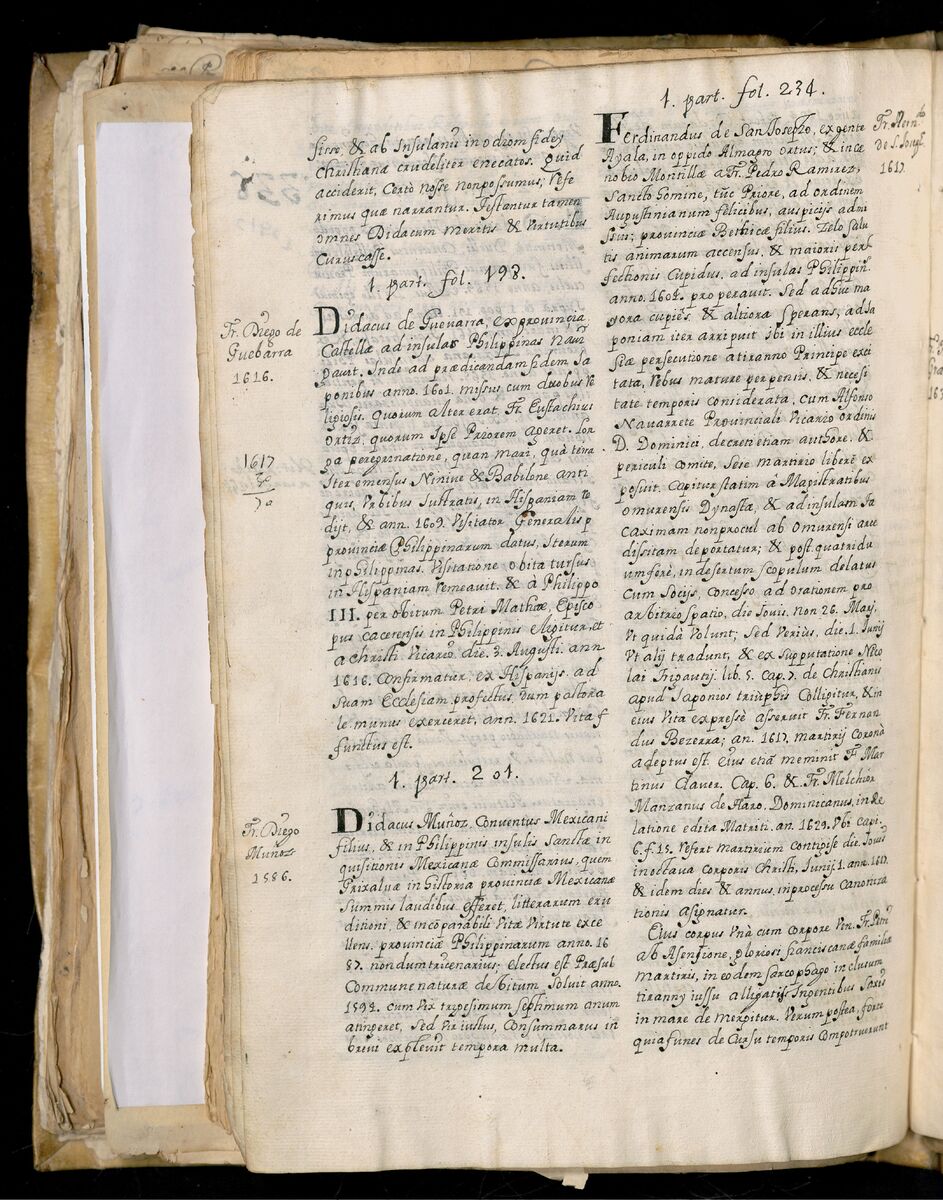 fisse, & ab Insulanis in odiom fidey
Christianæ crudeliter enecatos. Quid
acciderit, Certò nosse non possumus; Refe
rimus quæ narrantur. Testantur tamen
omnes Didacum meritis & Virtutibus
Coruscasse.
1. part. fol. 193.
Fr. Diego de
Guebarra
1616.
Didacus de Guevarra, ex provincia
Castellæ ad insulas Philippinas navi
gavit. Inde ad prædicandam fidem Ja
ponibus anno. 1601. missus cum duobus Re
ligiosis. quorum alter erat, Fr. Eustachius
Ortiz, quorum Ipse Priorem ageret. Lon
ga peregrinatione, quan mari, quà terra
Iter emensus Ninive & Babilone anti
quis, Vrbibus lustratis, in Hispaniam re
dijt, & ann. 1609. Visitator Generalis p
provinciæ Philippinarum datus, Iterum
in philippinas. Visitatione obita rursus
in Hispaniam remeavit. & à Philippo
III. per obitum Petri Mathiæ, Episco
pus cacerensis in Philippinis eligitur, et
a christi Vicario die. 3. Augusti. ann
1616. Confirmatur; ex Hispanijs. ad
suam Ecclesiam profectus, dum pastora
le munus exerceret, ann. 1621. Vita f
functus est.
1617
30
1. part. 201.
Fr. Diego
Muñoz
1586.
Didacus Muñoz, Conventus Mexicani
filius, & in Philippinis insulis Sanctæ in
quisitionis Mexicanæ Commissarius, quem
Grixalvæ in historia provinciæ Mexicanæ
summis laudibus efferet, litterarum eru
ditioni, & incõparabili Vitæ Virtute exce
llens. provinciæ Philippinarum anno. 16
87. nondum tricenarius; electus est Præsul
Commune naturæ debitum, Soluit anno.
1594. cum Vix trigesimum septimum anum
atingeret, Sed Vir iustus, Consummatus in
brevi explevit tempora multa.
1. part. fol. 234.
Fr. Hern.do
de S. Joseph.
1617.
Ferdinandus de San Josepho, ex gente
Ayala, in oppido Almagro ortus; & in cœ
nobio Montillæ a Fr. Pedro Ramirez,
Sancto homine, tũc Priore, ad ordinem
Augustinianum felicibus, auspicijs admi
ssus; provinciæ Bethicæ filius. Zelo salu
tis animarum accensus, & maioris perf
fectionis Cupidus, ad insulas Philippin.
anno. 1604. properavit. Sed adhuc ma
gora cupiẽs, & altiora sperans, ad Ja
poniam iter arripuit Ibi in illius eccle
siæ persecutione a tiranno Principe exci
tata, rebus mature perpensis, & necesi
tate temporis considerata, cum Alfonso
Navarrete Provinciali Vicario ordinis
D. Dominici, decreti etiam authore, &
periculi comite, sese martirio libere ex
posuit. Capitur statim a Magistratibus
Omurensis Dynastæ, & ad insulam Ja
caximam non procul ab Omurensi arce
dissitam deportatur; & post quatridu
um ferè, in desertum scopulum delatus
Cum Socijs, Concesso, ad orationem pro
arbitrio spatio, die Iovis. non 26. Maij,
Vt quidã Volunt; Sed Verius, die. 1. Iunij
Vt alij tradunt, & ex supputatione Nico
lai Trigautij. lib. 5. Cap. 7. de Christianis
apud Japonios triũphis Colligitur, & in
eius Vita expressè asseruit Fr. Fernan
dus Bezerra; an. 1617. martirij Coronà
adeptus est. Eius etiã meminit Fr. Mar
tinus Claver. Cap. 6. & Fr. Melchior
Manzanus de Haro, Dominicanus, in Re
latione edita Matriti. an. 1629. Vbi capi.
6. f. 15. refert martiriem contigise die Iovis
in octava corporis Christi, Iunij 1. ann. 1617.
& idem dies & annus, in processu Canoniza
tionis asignatur.
Eius corpus Vnà cum corpore Ven. Fr. Petri
ab Asensione, gloriosi franciscanæ familiæ
martiris, in eodem sarcophago inclusum
tiranny iussu alligatis Ingentibus Saxis
in mare demergitur. Verum postea, forte
quia funes de Cursu temporis Computruerunt